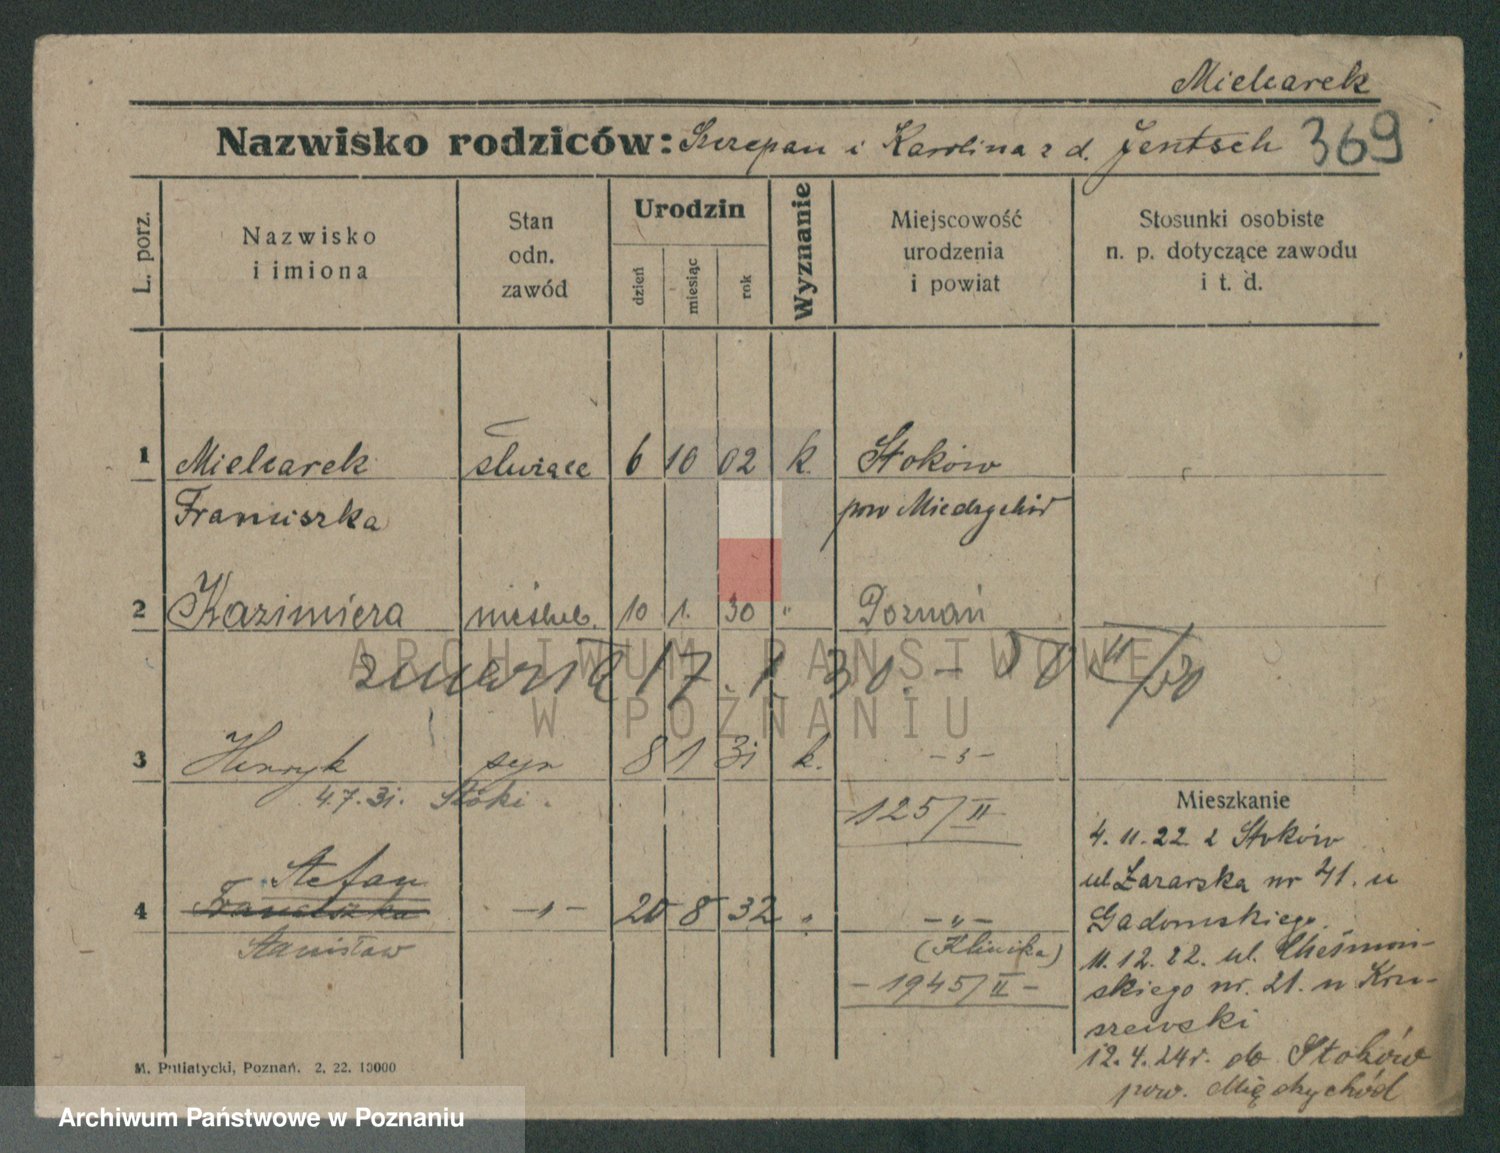 Mielcarek
Nazwisko rodziców: Szczepan i Karolina z d. Jentsch 369
L. porz.
Nazwisko i imiona
Stan odn. zawód
Urodzin
dzień
miesiąc
rok
Wyznanie
Miejscowość urodzenia i powiat
Stosunki osobiste n. p. dotyczące zawodu i t. d.
1 Mielcarek służące 6 10 02 k. Stoków
Franciszka pow Miedzychód
2 Kazimiera nieślub. 10 1. 30 " Poznań
zmarła 17. 1. 30. -
3 Henryk syn 8 1 31 k. - " -
4.7.31. Stoki.
125/II
Mieszkanie
4. 11. 22 z Stoków
ul Łazarska nr 41. u
Gadomskiego
Stefan
4 Franciszka - " - 20 8 32 " - " -
Stanisław (Klinika)
- 1945/II -
11. 12. 22. ul. Chełmoń-
skiego nr. 21. u Kru-
szewski
12. 4. 24r. do Stoków
pow. Międzychód
M. Putiatycki, Poznań. 2. 22. 10000
ARCHIWUM PAŃSTWOWE
W POZNANIU
Archiwum Państwowe w Poznaniu